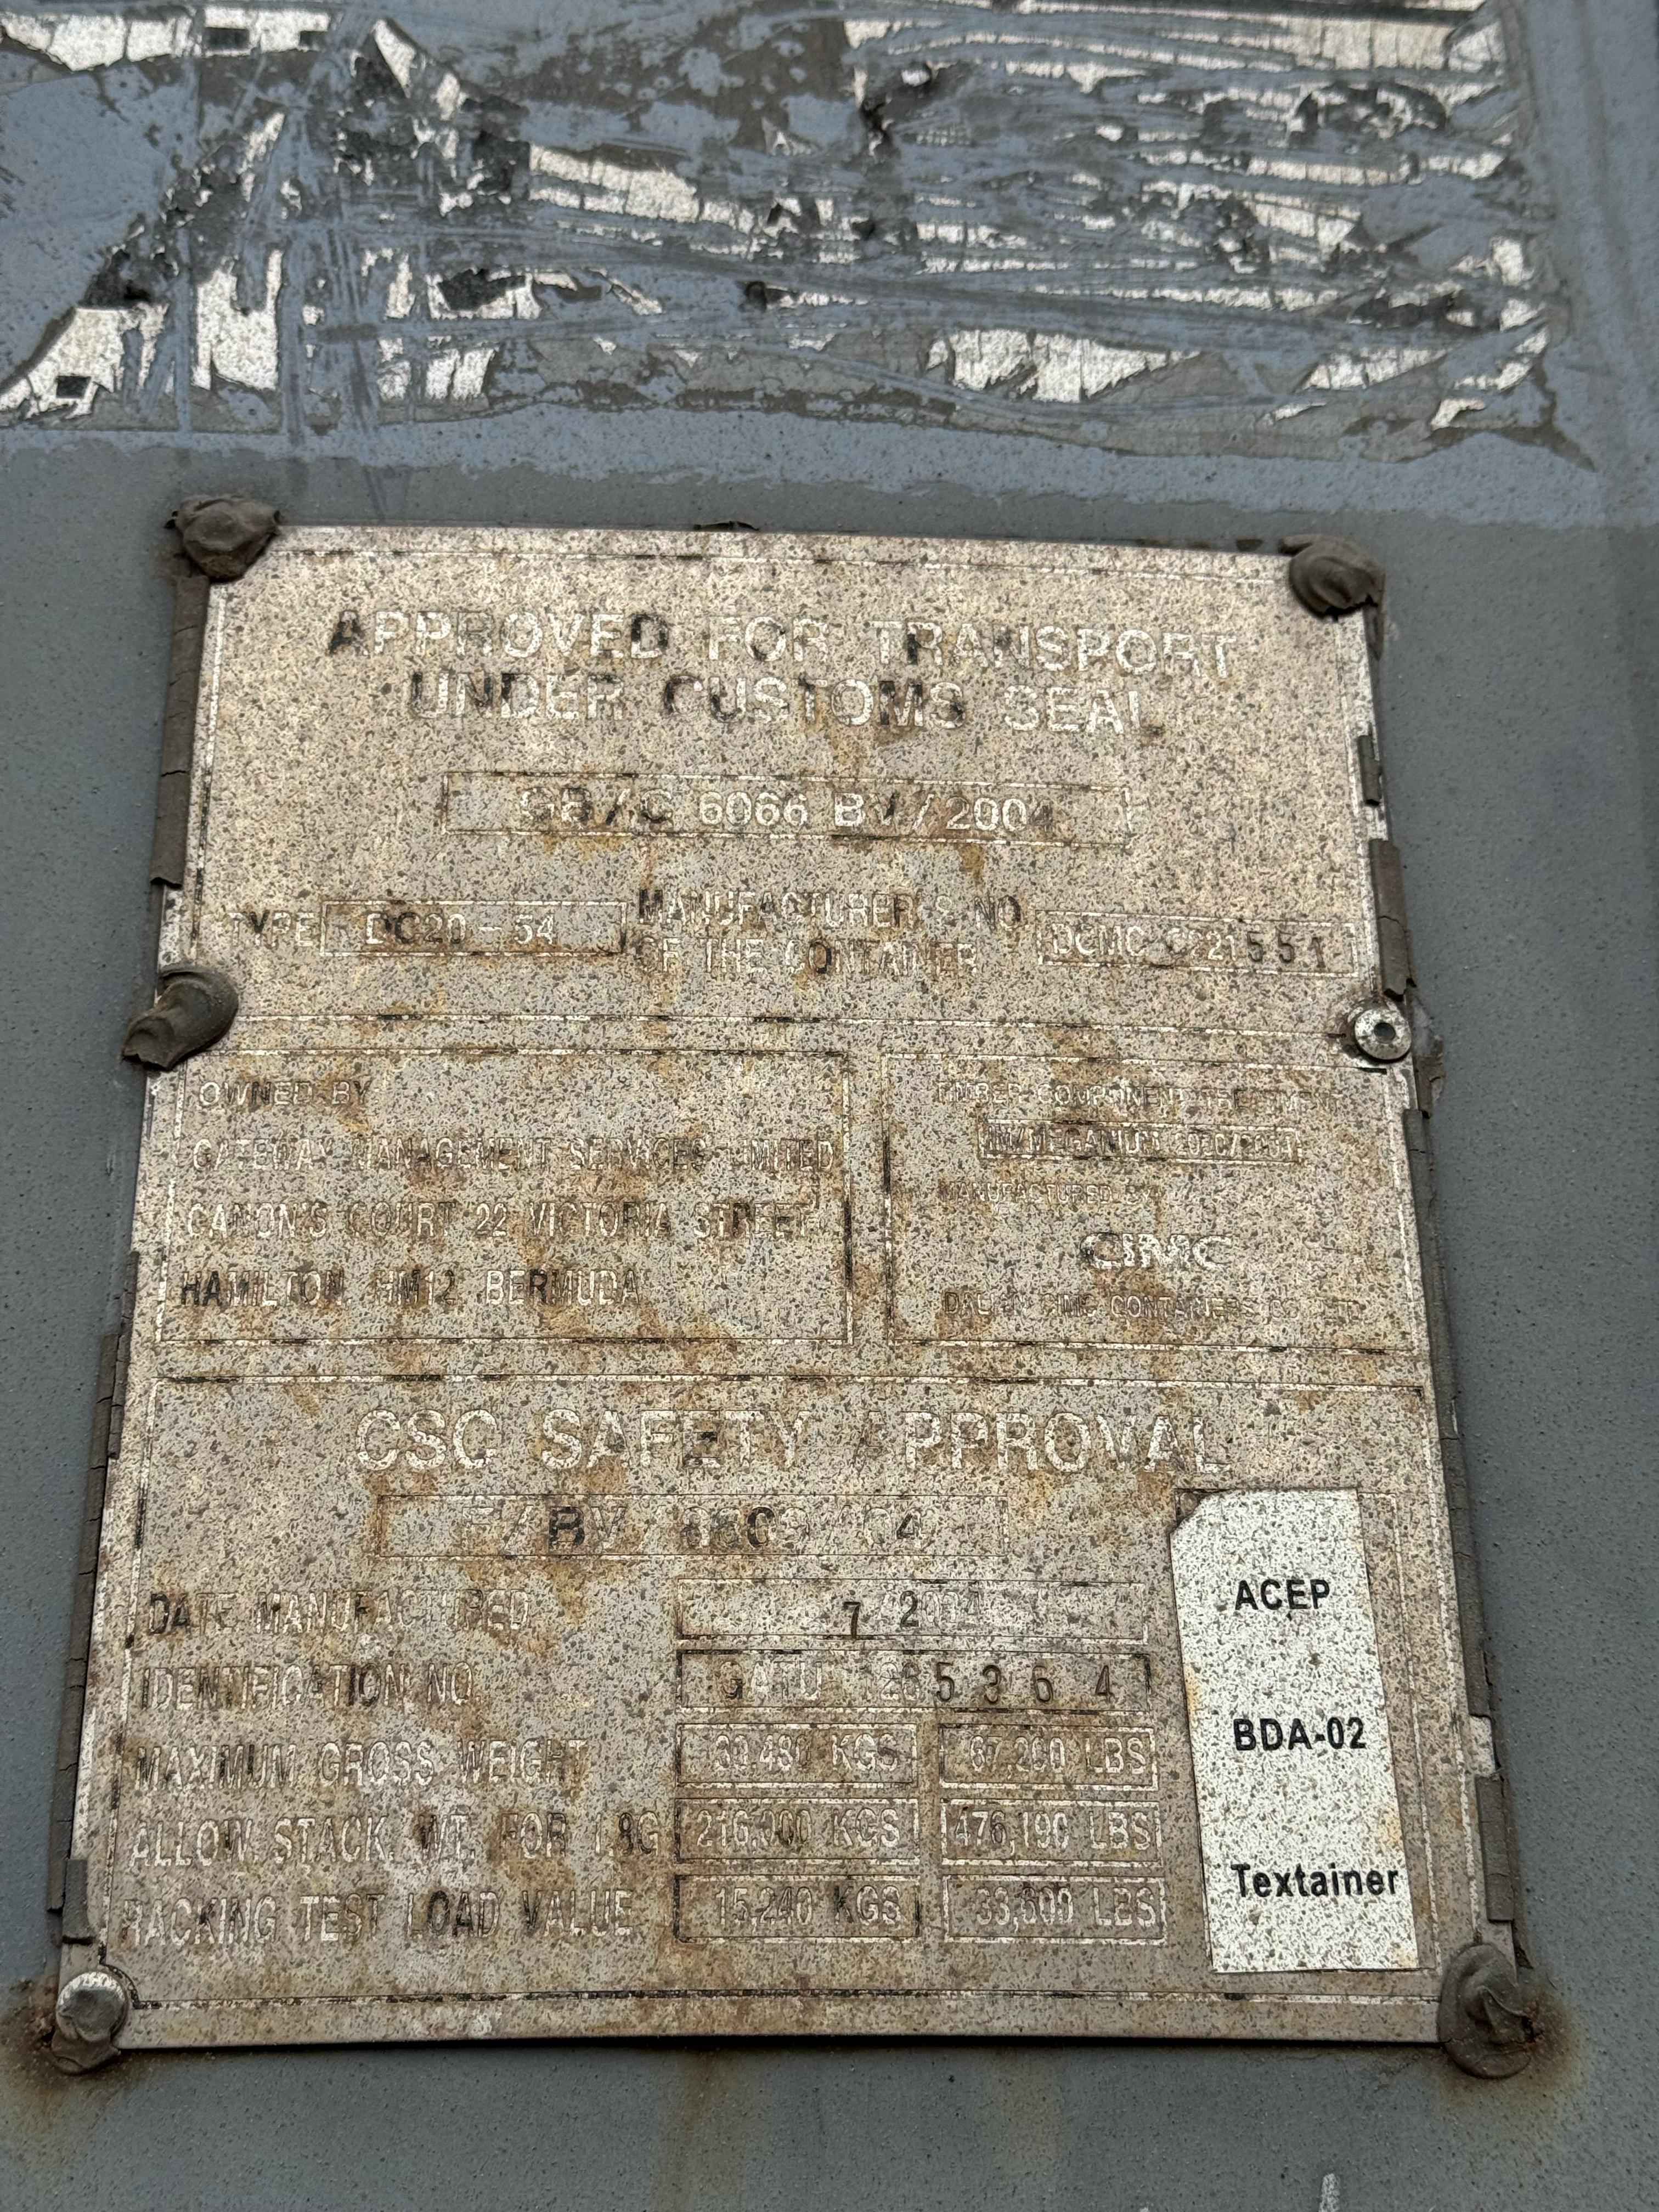 APPROVED FOR TRANSPORT
UNDER CUSTOMS SEAL
GB/C 6066 BV/2004
TYPE DC20-54 MANUFACTURER'S NO. OF THE CONTAINER DCMC C221551
OWNED BY
GATEWAY MANAGEMENT SERVICES LIMITED
CANON'S COURT 22 VICTORIA STREET
HAMILTON HM12 BERMUDA
TIMBER COMPONENT TREATMENT
MANUFACTURED BY
CIMC
DALIAN CIMC CONTAINERS CO., LTD.
CSC SAFETY APPROVAL
DATE MANUFACTURED 7/2004
IDENTIFICATION NO. GATU 1285364
MAXIMUM GROSS WEIGHT 30,480 KGS 67,200 LBS
ALLOW. STACK. WT. FOR 1.8G 216,000 KGS 476,190 LBS
RACKING TEST LOAD VALUE 15,240 KGS 33,600 LBS
ACEP
BDA-02
Textainer